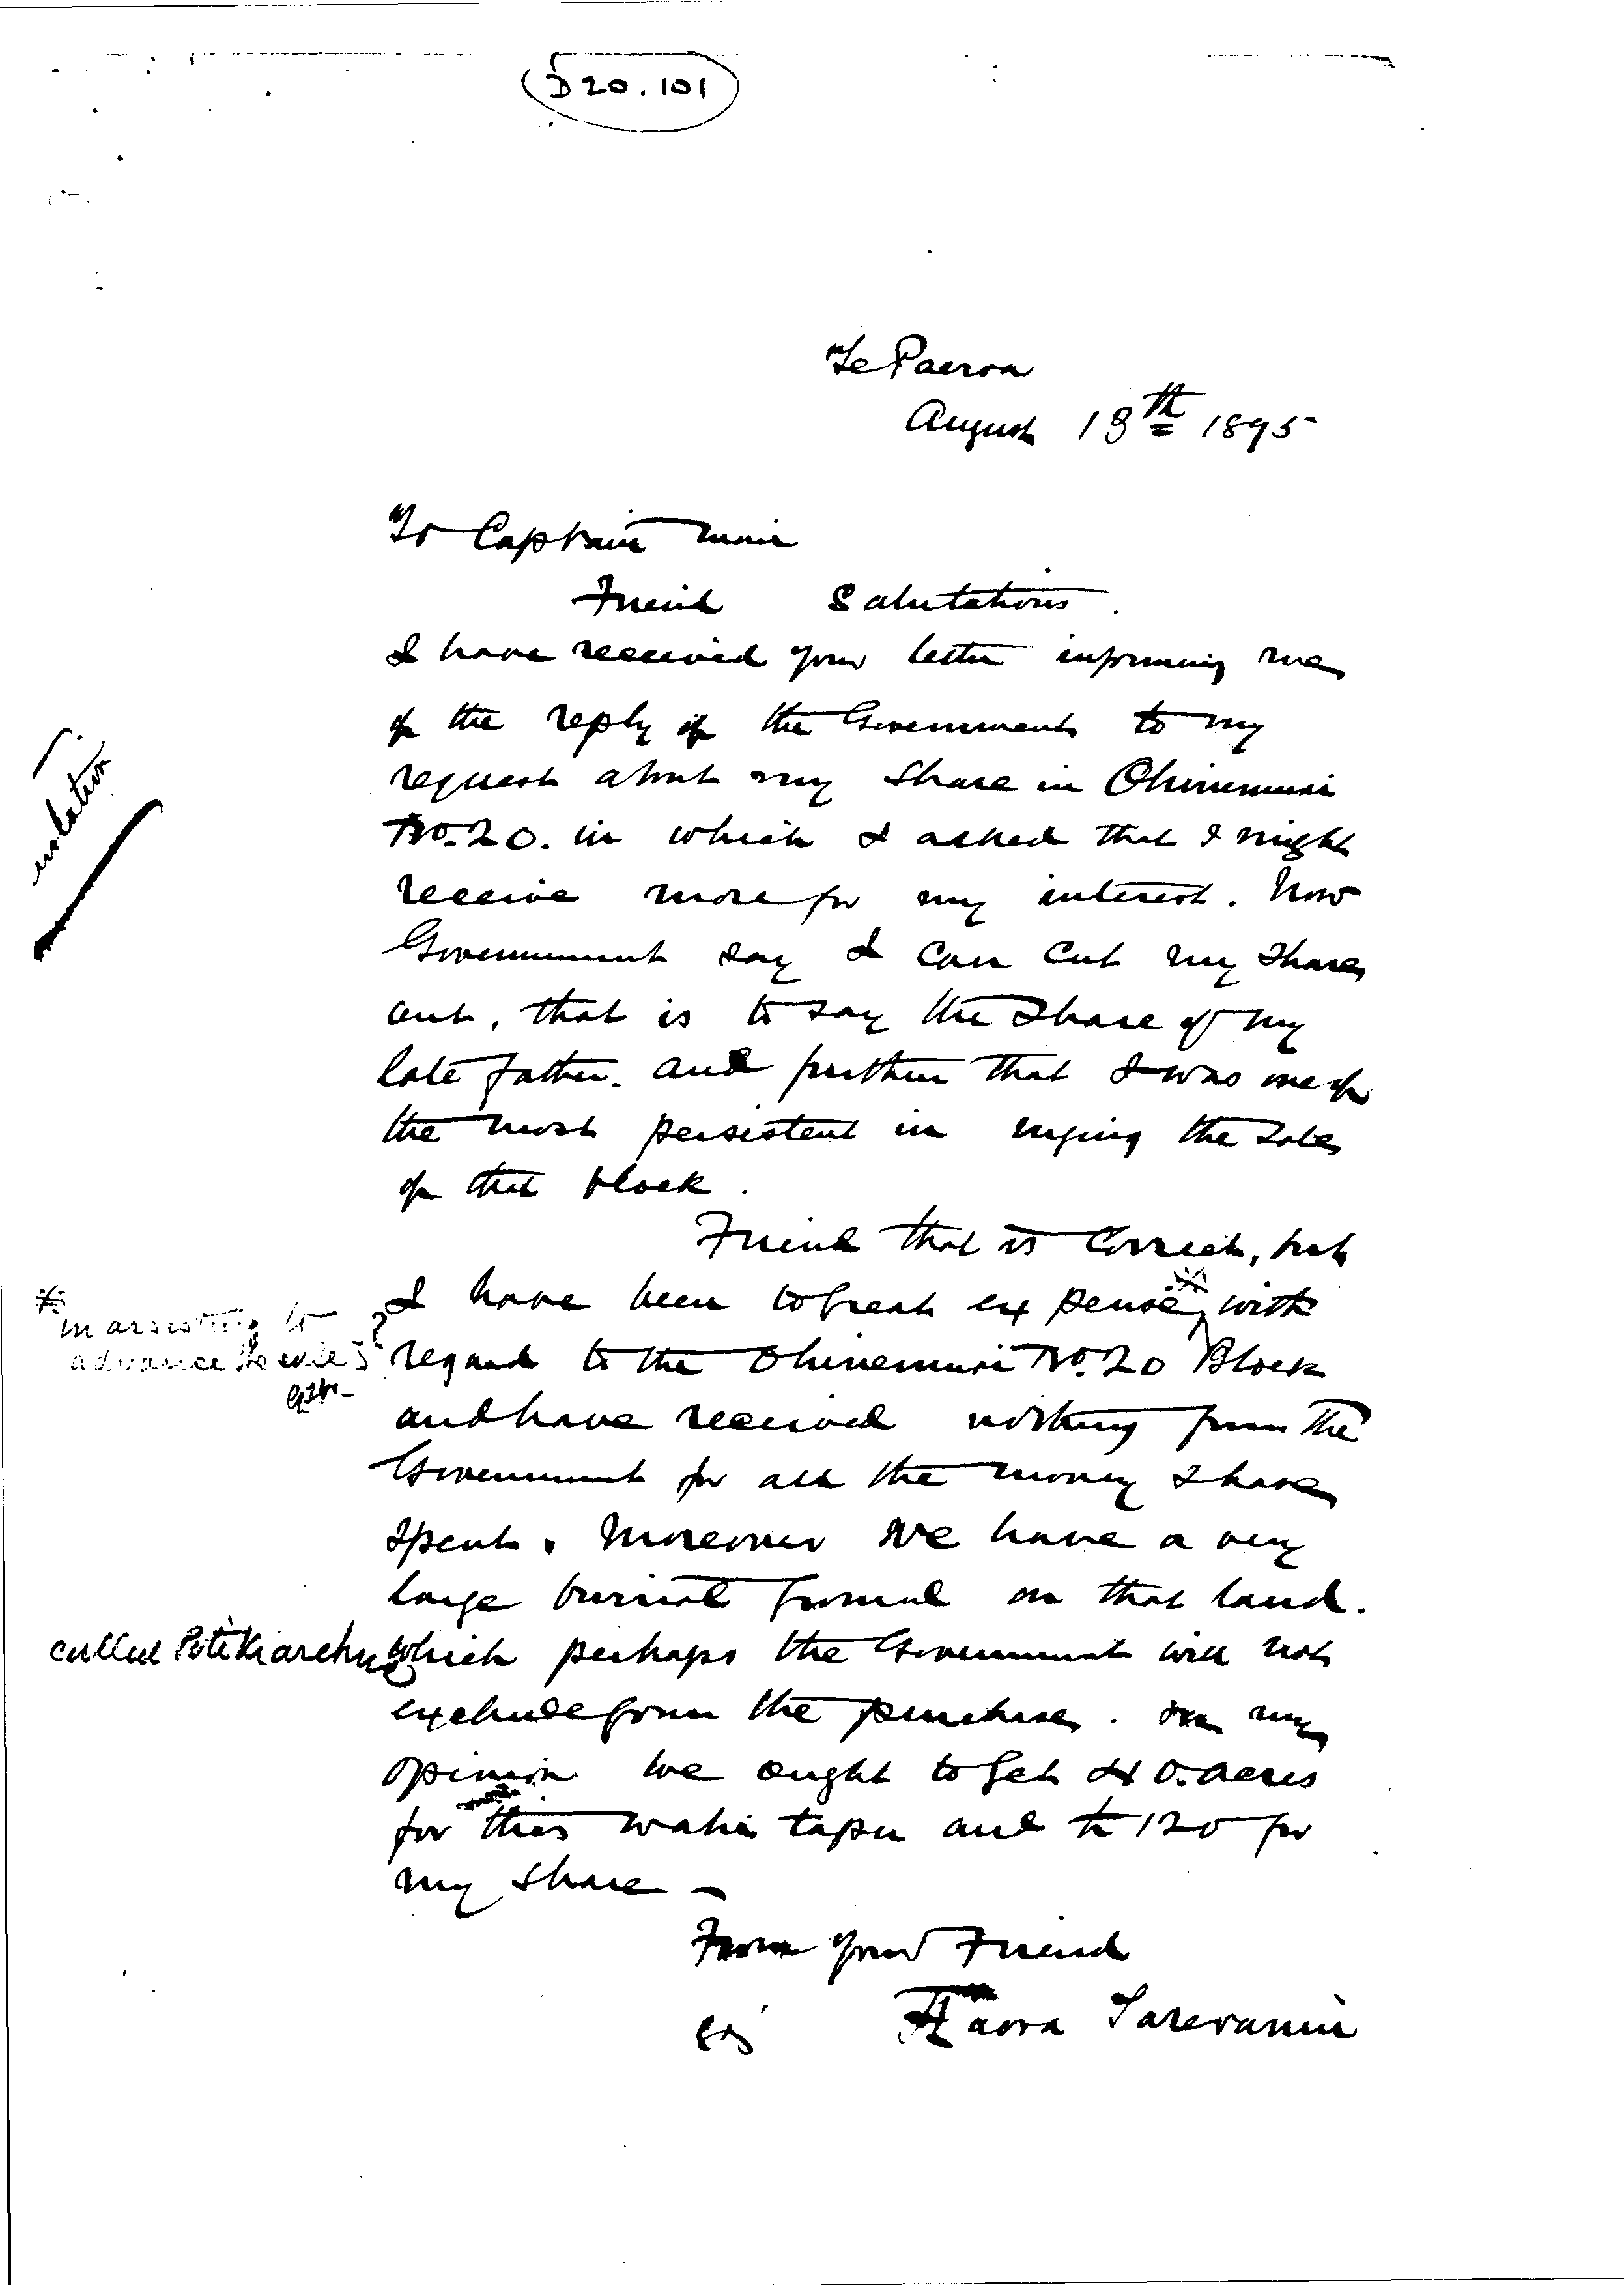 D20.101
Te Paeroa
August 13th 1895
To Captain Mair
Friend Salutations.
I have received your letter informing me
of the reply of the Government to my
request about my share in Ohinemuri
No. 20. in which I asked that I might
receive more for my interest. Now
Government say I can cut my share
out, that is to say the share of my
late father. and further that I was one of
the most persistent in urging the sale
of the block.
Friend that is correct, but
I have been to great expense, with
* in assisting to
advance the sale
regard to the Ohinemuri No. 20 Block
and have received nothing from the
Government for all the money I have
spent. Moreover we have a very
large burial ground on that land.
called
which perhaps the Government will not
exclude from the purchase. In my
opinion we ought to get 40. acres
for this wahi tapu and 120 for
my share -
From your Friend
Haora Tareranui